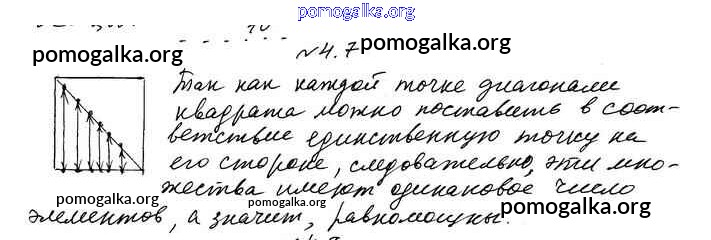 pomogalka.org
№4.7
pomogalka.org
pomogalka.org
Так как каждой точке диагонали
квадрата можно поставить в соот-
ветствие единственную точку на
его стороне, следовательно, эти мно-
жества имеют одинаковое число
pomogalka.org
pomogalka.org
pomogalka.org
элементов, а значит, равномощны.